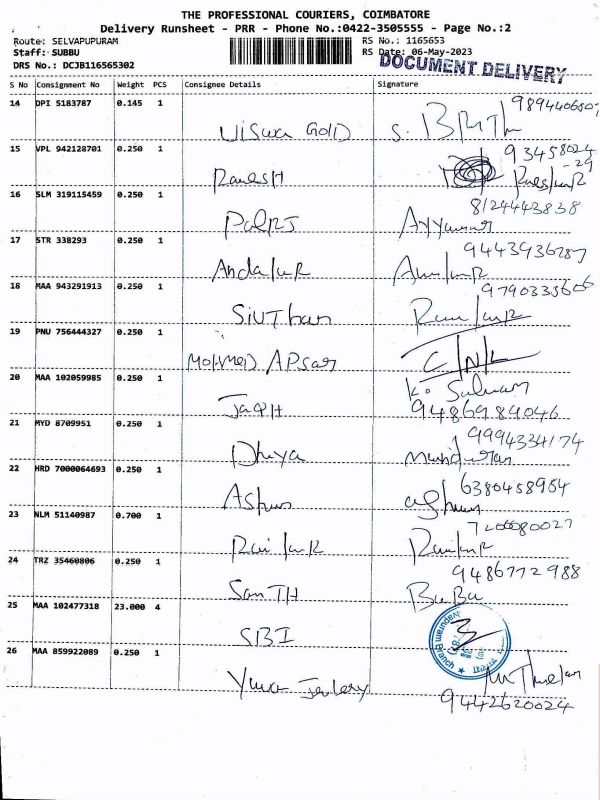 THE PROFESSIONAL COURIERS, COIMBATORE
Delivery Runsheet - PRR - Phone No.:0422-3505555 - Page No.:2
Route: SELVAPUPURAM RS No.: 1165653
Staff: SUBBU RS Date: 06-May-2023
DRS No.: DCJB116565302 DOCUMENT DELIVERY
S No Consignment No Weight PCS Consignee Details Signature
14 DPI 5183787 0.145 1
Viswa GOLD 9894406807
15 VPL 942128701 0.250 1
Ramesh 93458024
-29
16 SLM 319115459 0.250 1
8124443838
17 STR 338293 0.250 1
9443936287
18 MAA 943291913 0.250 1
9790333606
19 PNU 756444327 0.250 1
MOHMED APSAR C/N/L
20 MAA 102059985 0.250 1
9486989046
21 MYD 8709951 0.250 1
9994334174
Dhiya
22 HRD 7000064693 0.250 1
6380458984
23 NLM 51140987 0.700 1
24 TRZ 35460806 0.250 1
9486772988
SanTH BaBu
25 MAA 102477318 23.000 4
SBI
26 MAA 859922089 0.250 1
9442620024